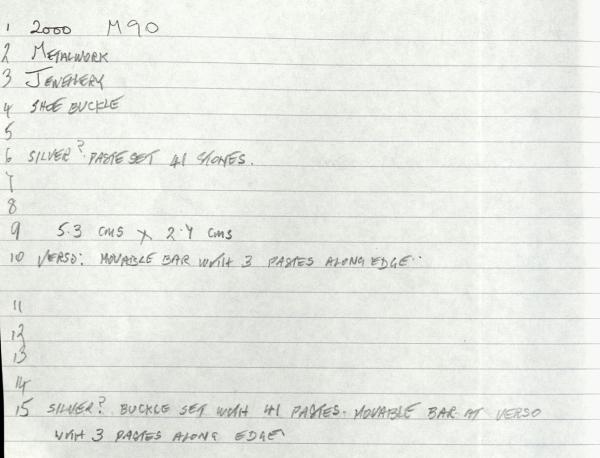 1 2000 M90
2 METALWORK
3 JEWELLERY
4 SHOE BUCKLE
5
6 SILVER? PASTE SET 41 STONES.
7
8
9 5.3 cms x 2.4 cms
10 VERSO: MOVABLE BAR WITH 3 PASTES ALONG EDGE..
11
12
13
14
15 SILVER? BUCKLE SET WITH 41 PASTES. MOVABLE BAR AT VERSO
WITH 3 PASTES ALONG EDGE